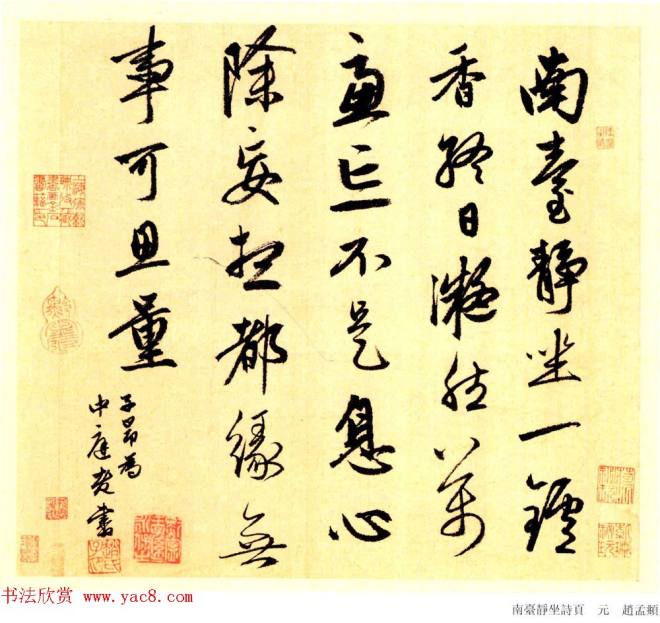 南臺靜坐一鑪
香終日凝然萬
慮忘不是息心
除妄想都緣無
事可思量
子昂爲
中庭老書
书法欣赏 www.yac8.com
南臺靜坐詩頁 元 趙孟頫